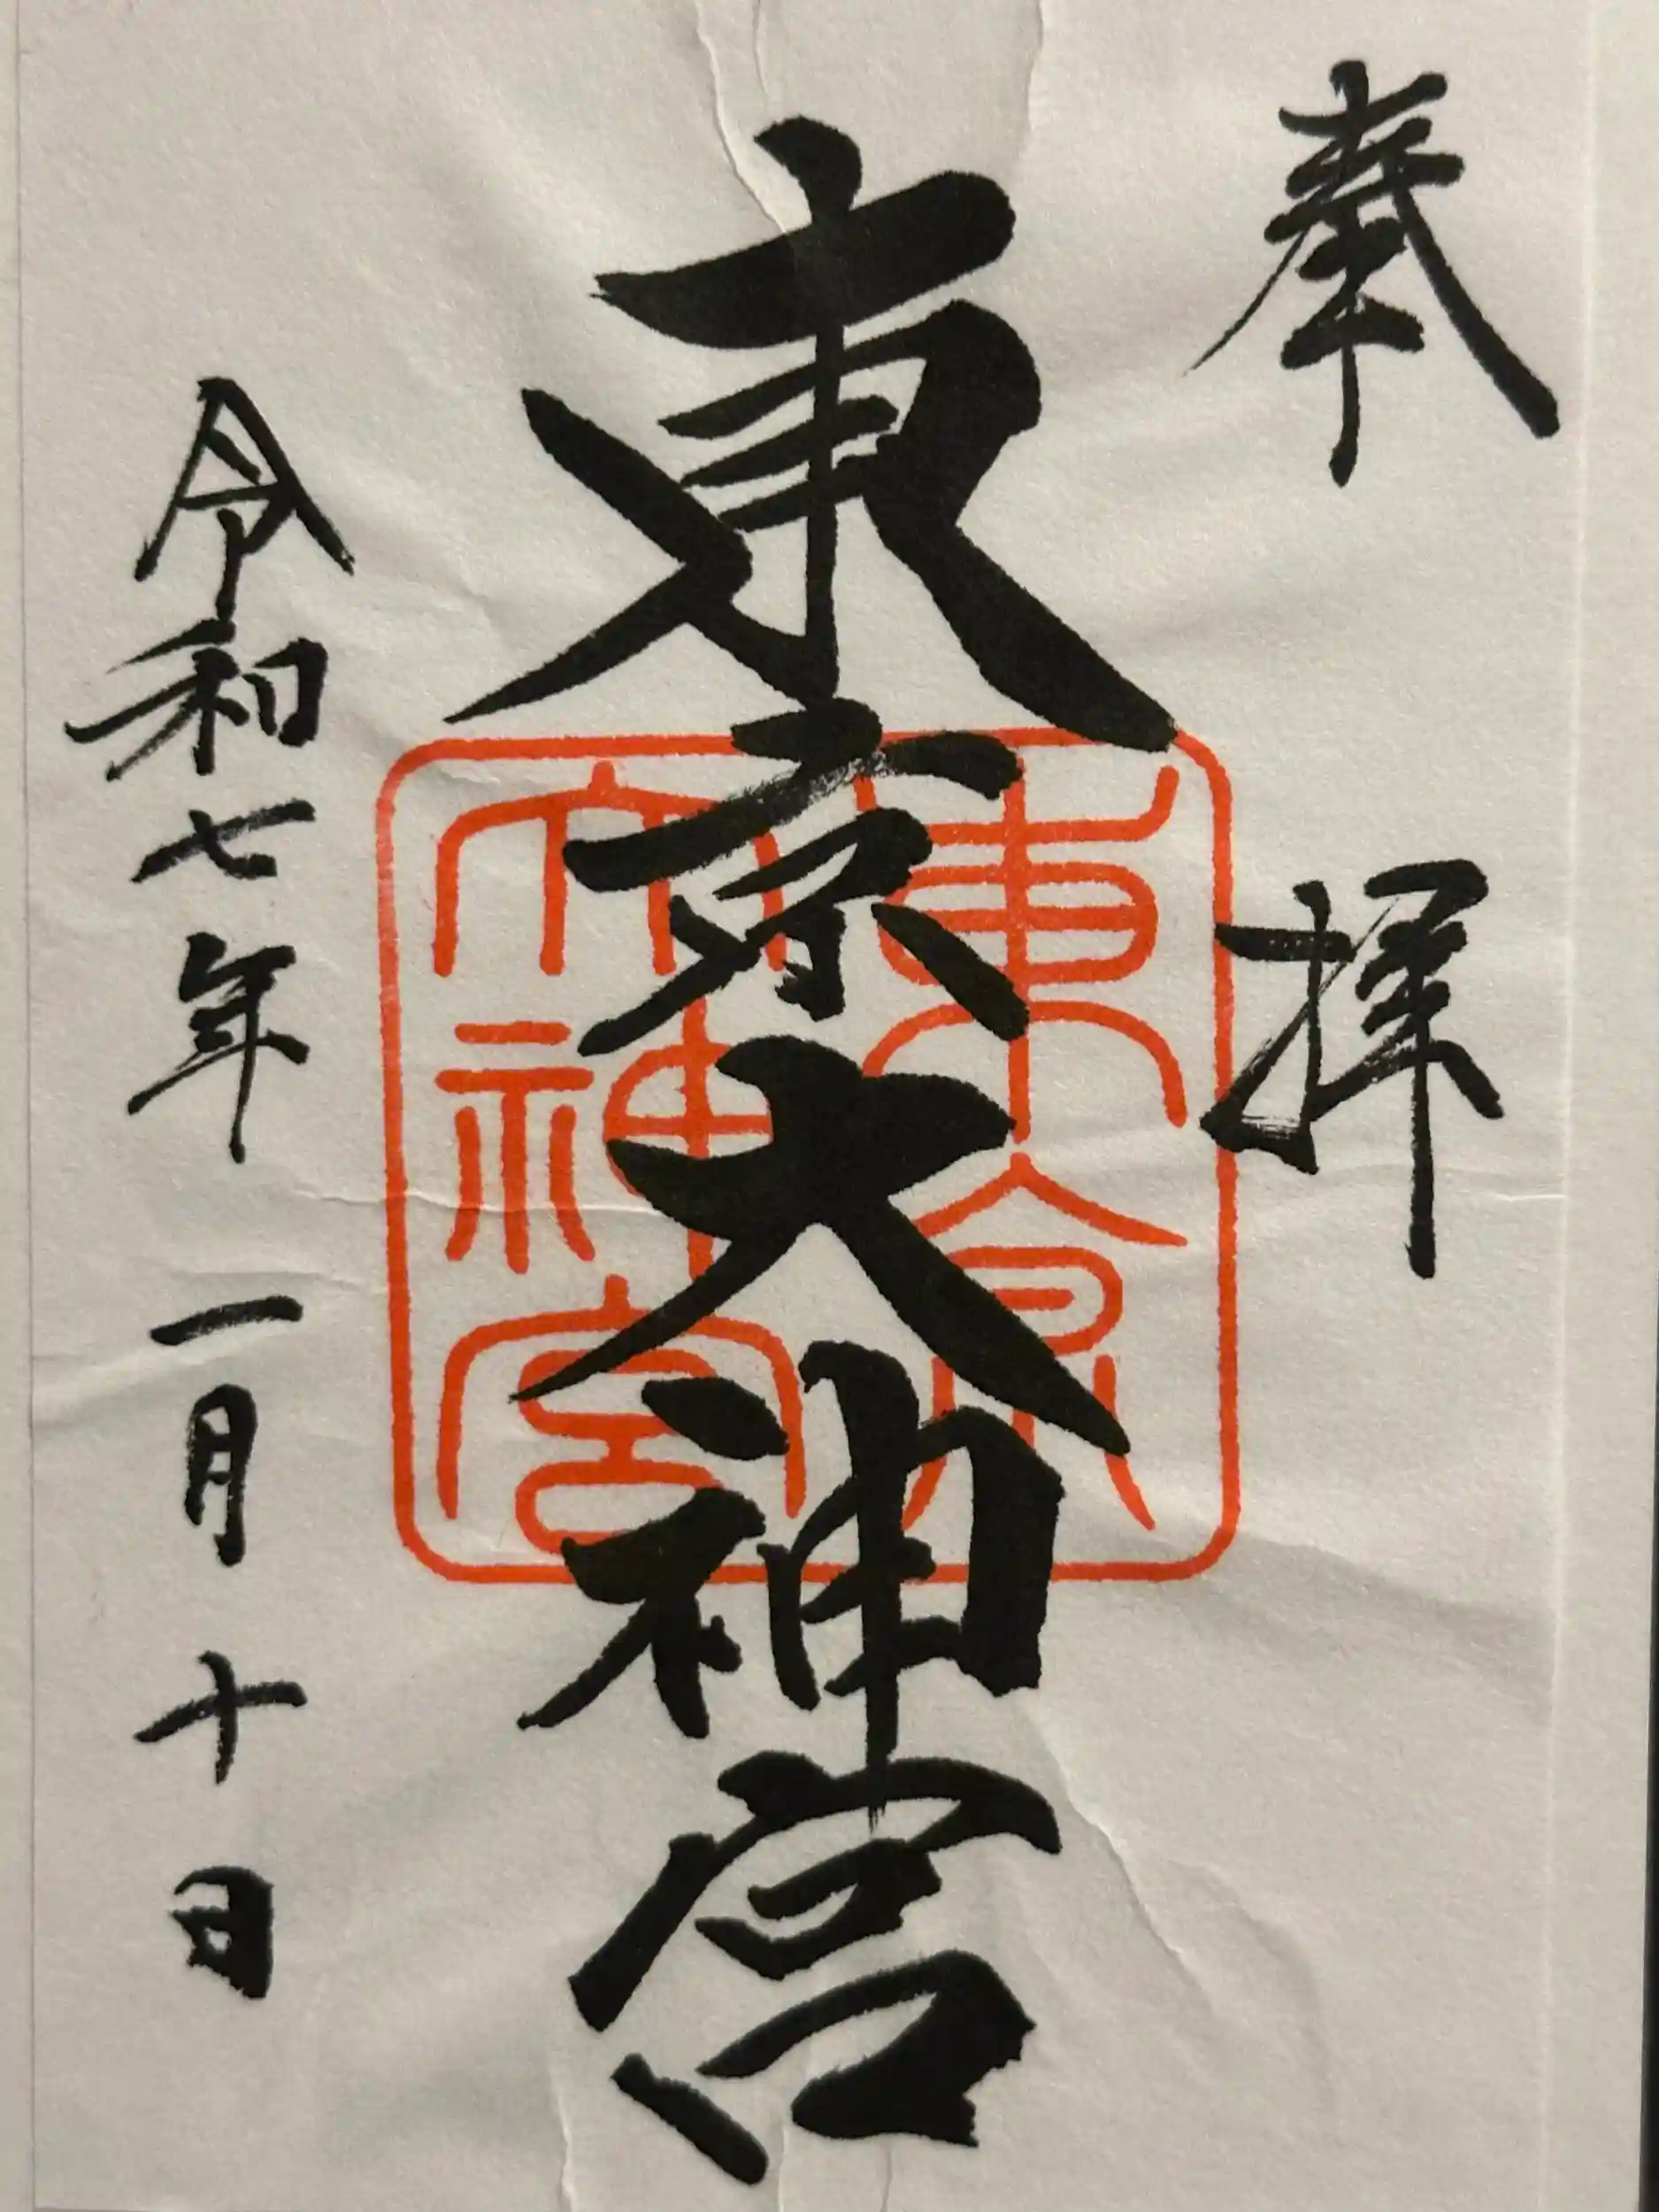 奉拝
東京大神宮
東京
大神宮
令和七年一月十日